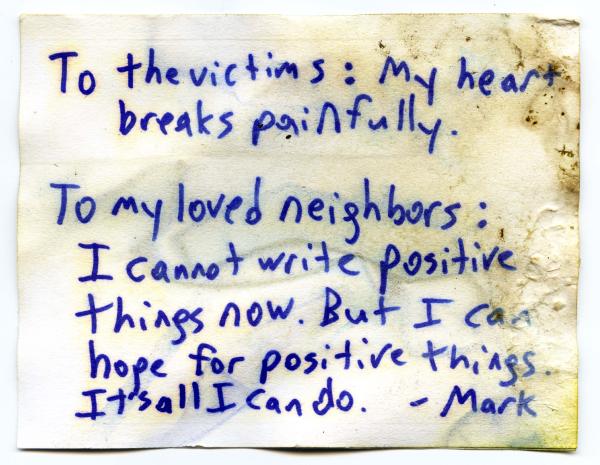 To the victims: My heart
breaks painfully.
To my loved neighbors:
I cannot write positive
things now. But I can
hope for positive things.
It's all I can do. - Mark